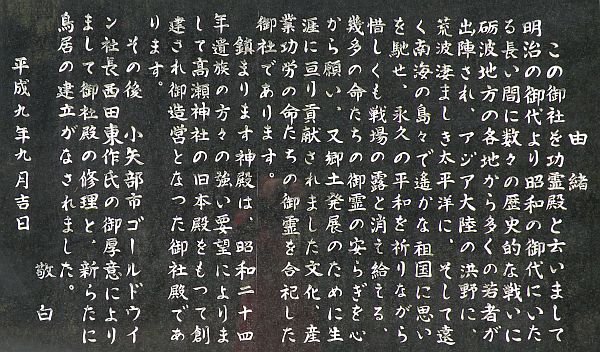 由緒
この御社を功霊殿と云いまして
明治の御代より昭和の御代にいた
る長い間に数々の歴史的な戦いに
砺波地方の各地から多くの若者が
出陣され、アジア大陸の洪野に、
荒波凄ましき太平洋に、そして遠
く南海の島々で遥かな祖国に思い
を馳せ、永久の平和を祈りながら
惜しくも戦場の露と消え給える、
幾多の命たちの御霊の安らぎを心
から願い、又郷土発展のために生
涯に亘り貢献されました文化、産
業功労の命たちの御霊を合祀した
御社であります。
鎮まります神殿は、昭和二十四
年遺族の方々の強い要望によりま
して高瀬神社の旧本殿をもって創
建され御造営となった御社殿であ
ります。
その後 小矢部市ゴールドウイ
ン社長西田東作氏の御厚意により
まして御社殿の修理と、新らたに
鳥居の建立がなされました。
敬白
平成九年九月吉日